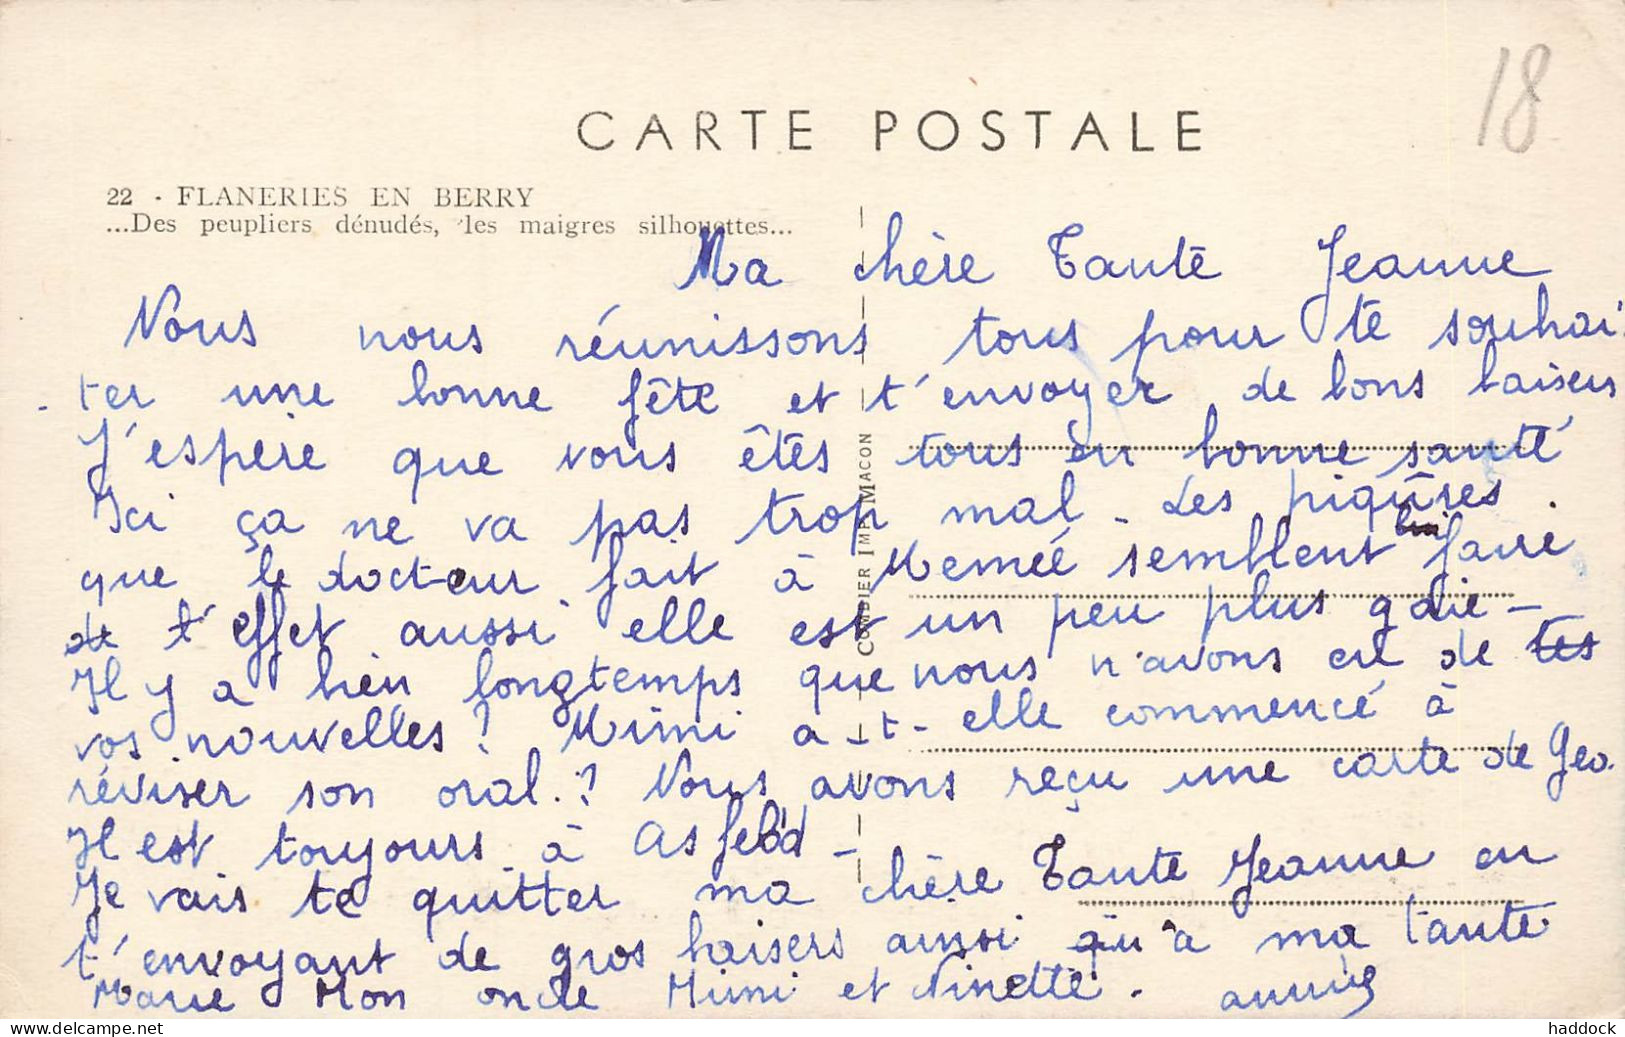 18
CARTE POSTALE
22 - FLANERIES EN BERRY
...Des peupliers dénudés, les maigres silhouettes...
COMBIER IMP. MACON
Ma chère Tante Jeanne
Nous nous réunissons tous pour te souhai-
ter une bonne fête et t'envoyer de bons baisers
J'espère que vous êtes tous en bonne santé
Ici ça ne va pas trop mal. Les piqûres
que le docteur fait à Memée semblent faire
de l'effet aussi elle est un peu plus gaie -
Il y a bien longtemps que nous n'avons eu de tes
vos nouvelles? Mimi a-t-elle commencé à
réviser son oral.? Nous avons reçu une carte de Geo.
Il est toujours à Asfeld -
Je vais te quitter ma chère Tante Jeanne en
t'envoyant de gros baisers ainsi qu'à ma tante
Marie Mon oncle Mimi et Ninette.
haddock
delcampe.net